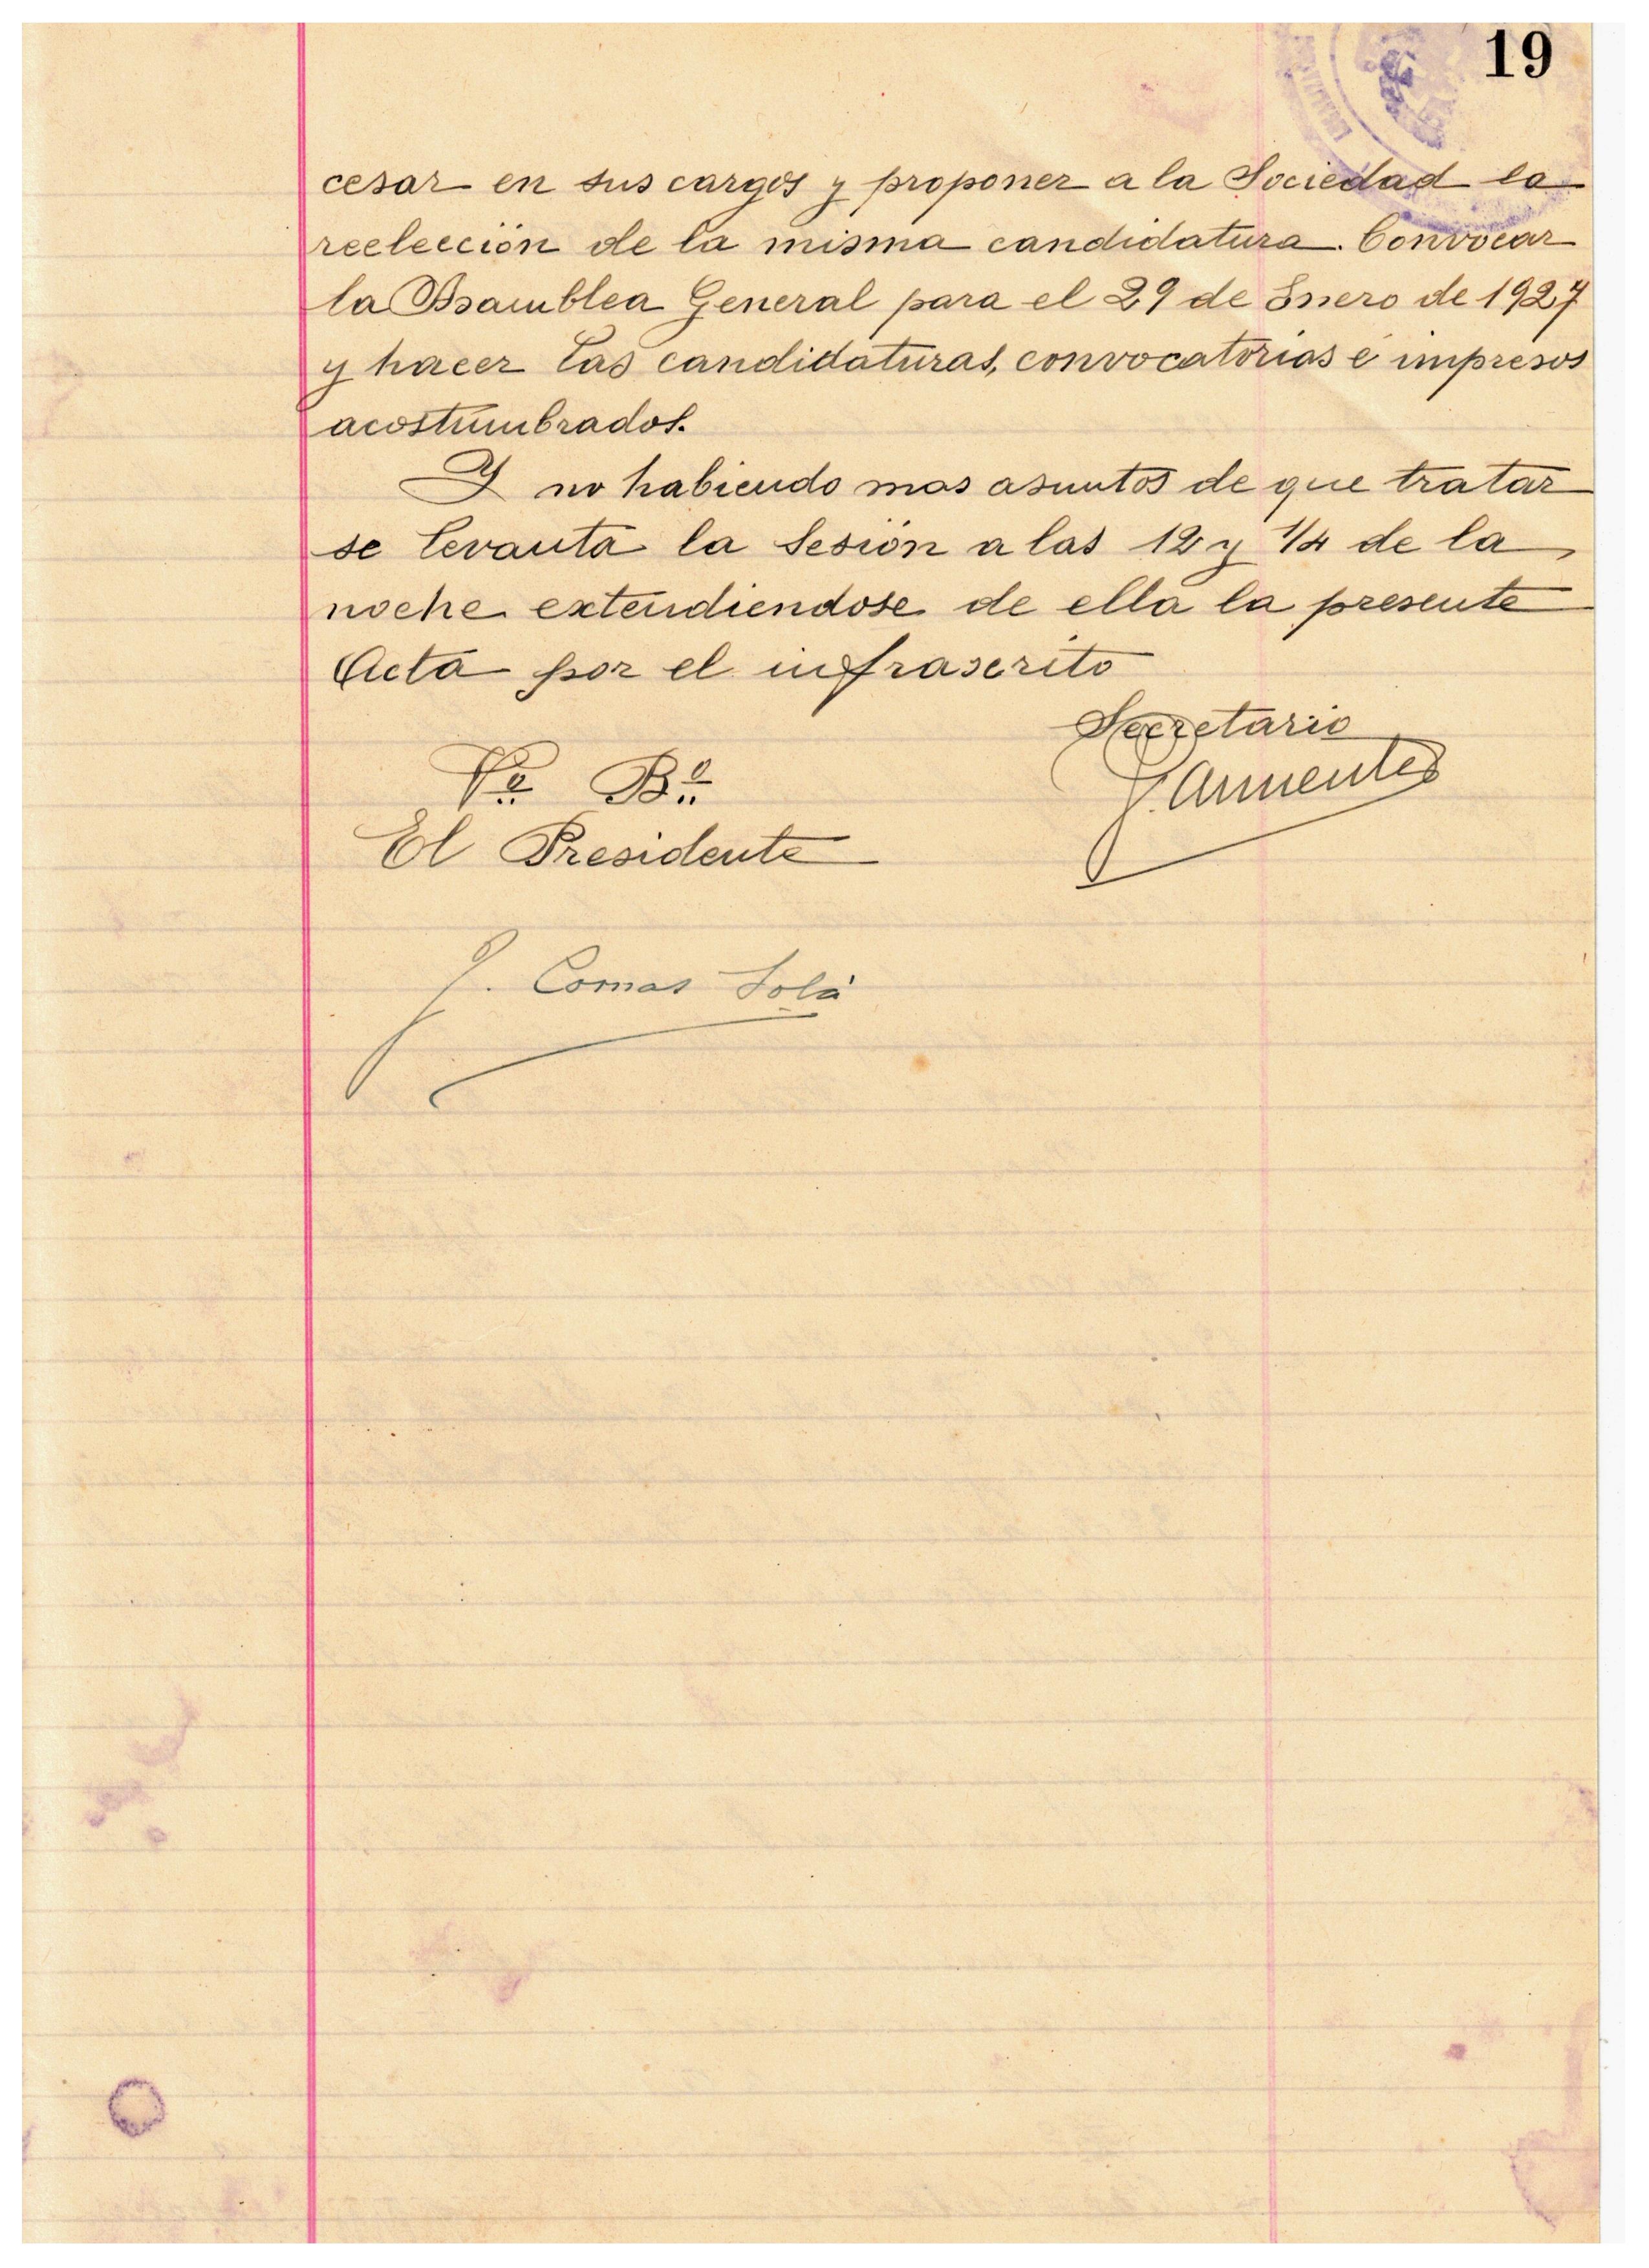 19
cesar en sus cargos y proponer a la Sociedad la
reelección de la misma candidatura. Convocar
la Asamblea General para el 29 de Enero de 1927
y hacer las candidaturas, convocatorias é impresos
acostumbrados.
Y no habiendo mas asuntos de que tratar
se levanta la Sesión a las 12 y 1/4 de la
noche extendiendose de ella la presente
Acta por el infrascrito
Secretario
Armenter
Vº Bº
El Presidente
J. Comas Solà